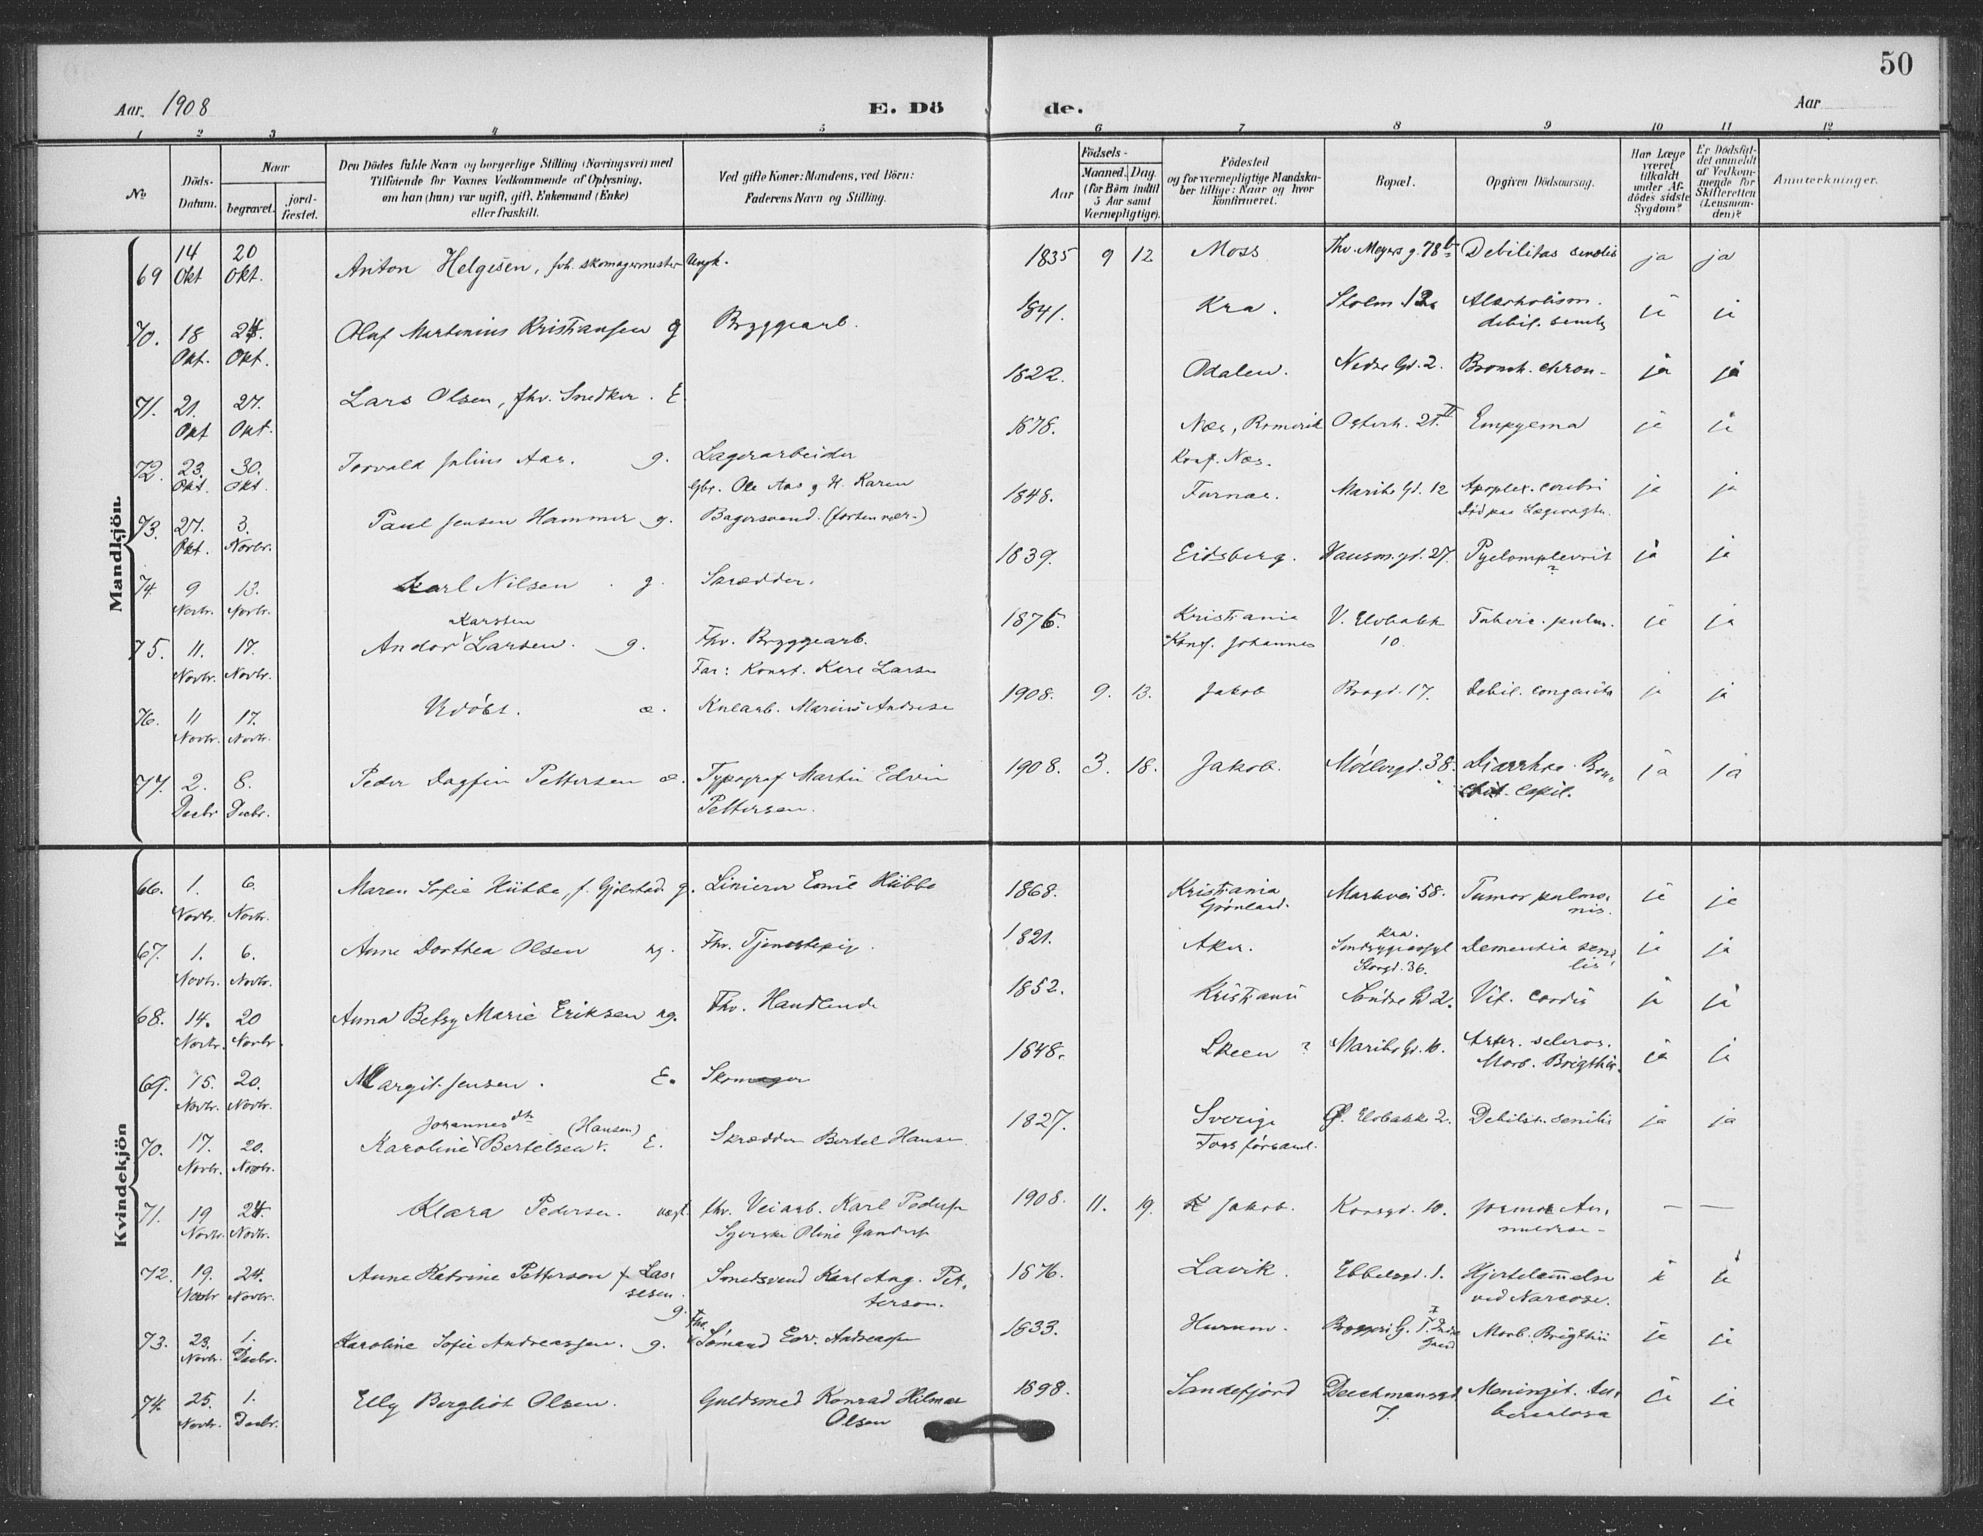 50
Aar. 1908
E. Dö de.
Aar
1 2 3 4 5 6 7 8 9 10 11 12
No
Döds-Datum.
Naar
begravet.
jord-fæstet.
Den Dödes fulde Navn og borgerlige Stilling (Næringsvei) med
Tilföiende for Voxnes Vedkommende af Oplysning,
om han (hun) var ugift, gift, Enkemand (Enke)
eller fraskilt.
Ved gifte Koner: Mandens, ved Börn:
Faderens Navn og Stilling.
Aar
Födsels-
Maaned. Dag.
(for Börn indtil
5 Aar samt
Værnepligtige).
Födested
og for værnepligtige Mandska-
ber tillige: Naar og hvor
konfirmeret.
Bopæl.
Opgiven Dödsaarsag.
Har Læge
været
tilkaldt
under Af-
dödes sidste
Sygdom?
Er Dödsfal-
det anmeldt
af Vedkom-
mende for
Skifteretten
(Lensman-
den)?
Anmærkninger.
Mandkjön.
69 14 Okt 20 Okt. Anton Helgesen, fvh. skomagermester Ungk. 1835 9 12 Moss Thv. Meyers g. 78 b Debilitas senilis ja ja
70. 18 Okt. 24. Okt. Oluf Martinius Kristiansen g Bryggearb. 1841. Kra. Stolm 12 Alcoholism. debil. senilis ja ja
71. 21. Okt 27. Okt. Lars Olsen, fhv. Snedker. E. 1822. Odalen. Nedre Gd. 2. Bronch. chron. ja ja
72. 23. Okt. 30. Okt. Torvald Julius Aas. g. Lagerarbeider
Gbr. Ole Aas og H. Karen 1878. Næs, Romerik
Konf. Næs. Osterh. 21. II Empyema ja ja
73. 27. Okt. 3. Novbr. Paul Jensen Hammer g. Bagersvend. 1848. Furnæs. Maribo Gd. 12 Apoplex. cerebri
Död paa Lægevagten ja ja
74 9 Novbr. 13. Novbr. Karl Nilsen. g. Skrædder. 1839. Eidsberg. Hausm. gd. 27. ja ja
75. 11. Novbr. 17. Novbr. Andor Karsten Larsen. g. Fhv. Bryggearb.
Far: Konst. Karl Larsen 1876. Kristiania
Konf. Johannes V. Elvbakk 10. Tuberc. pulm. ja ja
76. 11 Novbr. 17. Novbr. Udöbt. æ. Marius Andresen 1908. 9. 13. Jakob Brogd. 17. Debil. congenita ja ja
77. 2. Decbr 8. Decbr. Peder Dagfin Pettersen æ. Typograf Martin Edvin
Pettersen. 1908. 3. 18. Jakob. Möllergd. 38. Diarrhoe. Bron-
chit. Capil. ja ja
Kvindekjön
66. 1. Novbr. 6. Novbr. Maren Sofie Hübbe, f. Gjölstad g. Linierer Emil Hübbe 1868. Kristiania
Grönland. Markvei 58. Tumor pulmo-
nis. ja ja
67. 1. Novbr. 6. Novbr. Anne Dorthea Olsen ug. Fhv. Tjenestepig. 1821. Aker. Kra.
Storgd. 36. Dementia seni-
lis ja ja
68. 14. Novbr. 20 Novbr. Anna Betsy Marie Eriksen ug. Fhv. Handlende 1852. Kristiania Söndre Gd 2. Vit. cordis ja ja
69. 15. Novbr. 20. Novbr. Margit Jensen. E. Skomager 1848. Skeen? Maribo Gd. 10. Arter. scleros.
Morb. Brigthii. ja ja
70. 17. Novbr. 20. Novbr. Karoline Johannesdtr Bertelsen (Hansen) E. Skrædder Bertel Hansen 1827. Sverige
Foss församl. Ø. Elvbakk 2. Debilit. senilis ja ja
71. 19 Novbr. 24. Novbr. Klara Pedersen. uægt. fhv. Veiarb. Karl Pedersen
Syerske Oline Gundersen 1908. 11. 19. Jakob. Korsgd. 10. — —
72. 19. Novbr 24. Novbr. Anne Katrine Petterson f. Las-
sesen. g. Smedsvend Karl Aug. Pet-
terson. 1876. Lavik. Ebbelsgd. 1. Hjertelammelse
ved Narcose. ja ja
73. 23. Novbr. 1. Decbr. Karoline Sofie Andreassen. g. Fhv. Sömand Edv. Andreasen 1833. Hurum. Morb. Brigthii ja ja
74. 25. Novbr. 1. Decbr. Elly Bergliot Olsen. Guldsmed Konrad Hilmar
Olsen 1898. Sandefjord Deichmansgd. 7. Meningit. tu-
berculosa ja ja